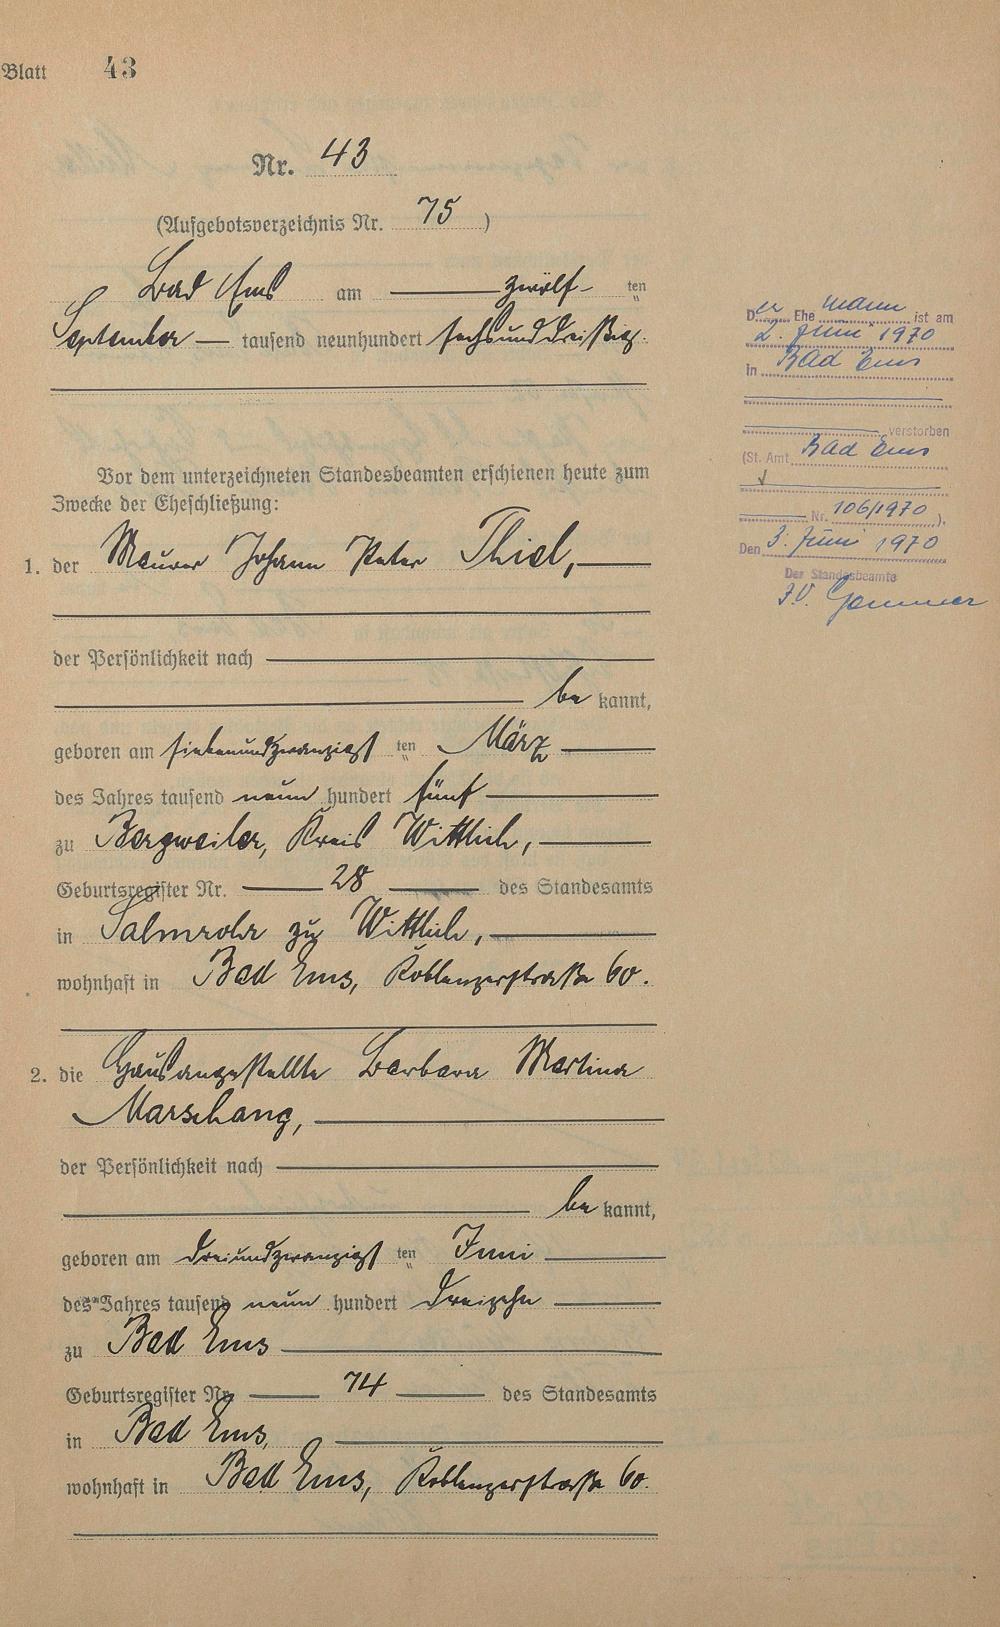 Blatt 43
Nr. 43
(Aufgebotsverzeichnis Nr. 75)
Bad Ems am zwölf ten
September tausend neunhundert sechsunddreißig.
Vor dem unterzeichneten Standesbeamten erschienen heute zum
Zwecke der Eheschließung:
1. der Maurer Johann Peter Thiel,
der Persönlichkeit nach
be kannt,
geboren am siebenundzwanzigst ten März
des Jahres tausend neun hundert fünf
zu Bergweiler, Kreis Wittlich,
Geburtsregister Nr. 28 des Standesamts
in Salmrohr zu Wittlich,
wohnhaft in Bad Ems, Koblenzerstraße 60.
2. die Hausangestellte Barbara Martina
Marschang,
der Persönlichkeit nach
be kannt,
geboren am dreiundzwanzigst ten Juni
des Jahres tausend neun hundert dreizehn
zu Bad Ems
Geburtsregister Nr. 74 des Standesamts
in Bad Ems,
wohnhaft in Bad Ems, Koblenzerstraße 60.
Der Ehe mann ist am
2. Juni 1970
in Bad Ems
verstorben
(St. Amt Bad Ems
Nr. 106/1970).
Den 3. Juni 1970
Der Standesbeamte
I.V.